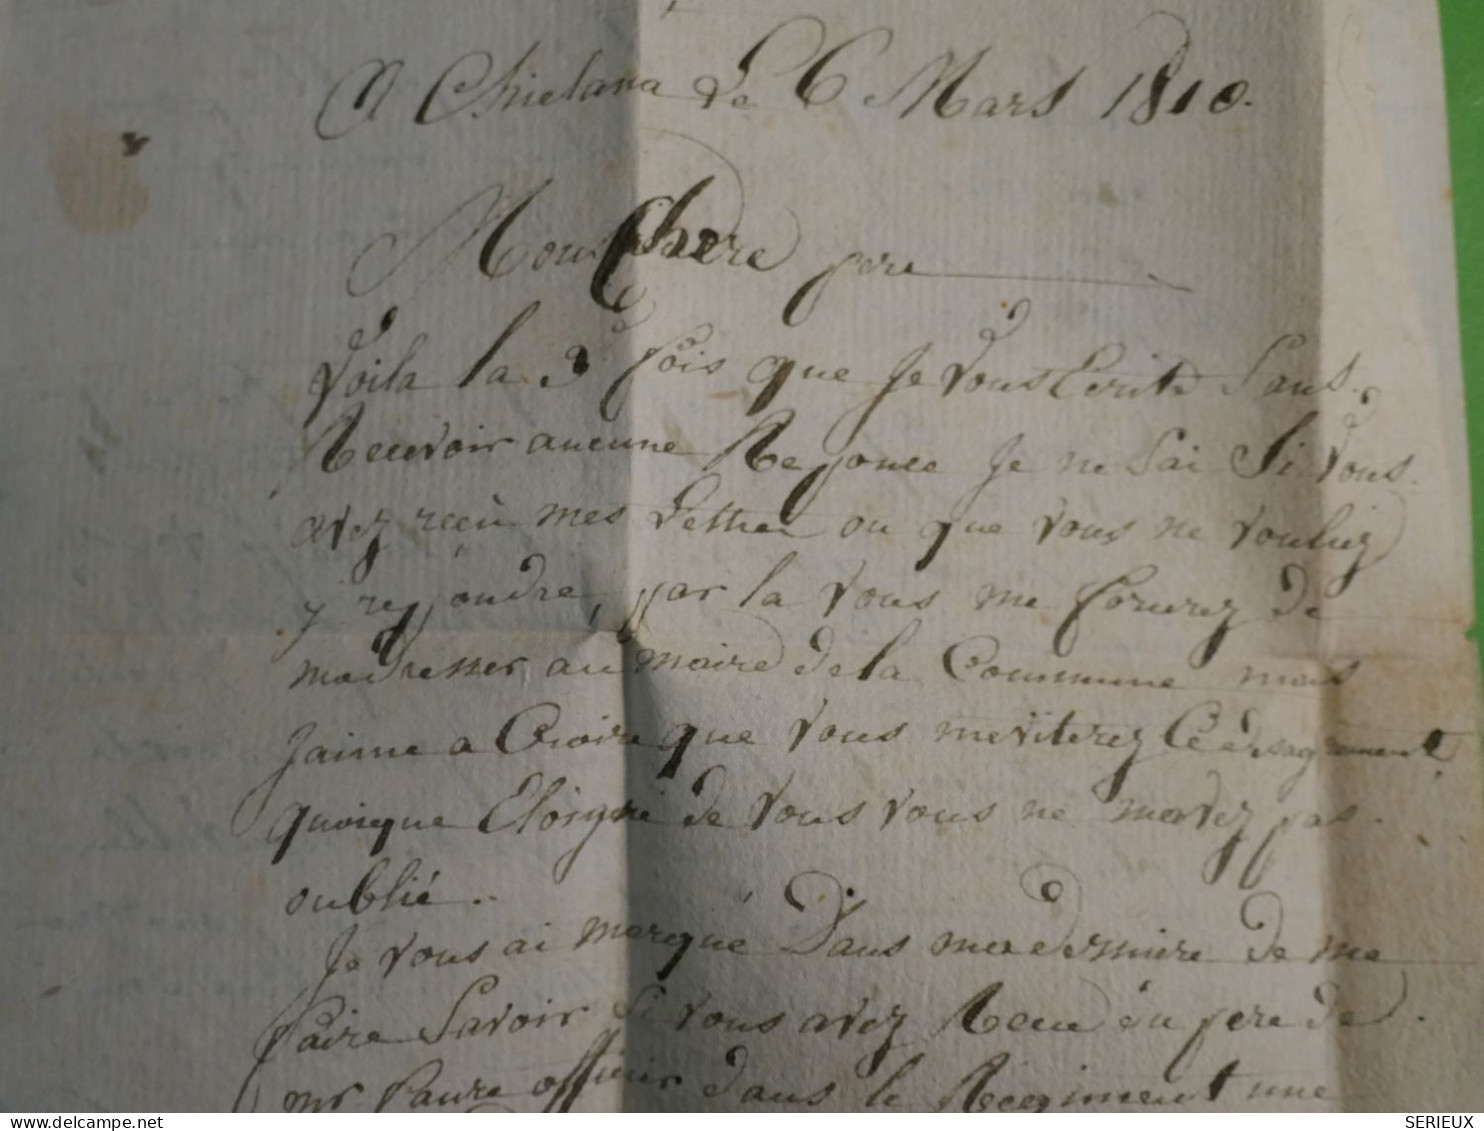 A Chielana Le 6 Mars 1810.
Mon Chere pere
Voila la 3e fois que Je vous Ecrits Sans
Recevoir aucune Reponce Je ne Sai Si vous
avez reçu mes Lettres ou que vous ne vouliez
y repondre, par la vous me forcerez de
madresser au maire de la Commune mais
Jaime a Croire que vous meviterez Ce desagrement
quoique Eloigné de vous vous ne mavez pas
oublié..
Je vous ai marqué Dans ma derniere de me
faire Savoir Si vous avez Recu du pere de
mr faure officier dans le Regiment une
SERIEUX